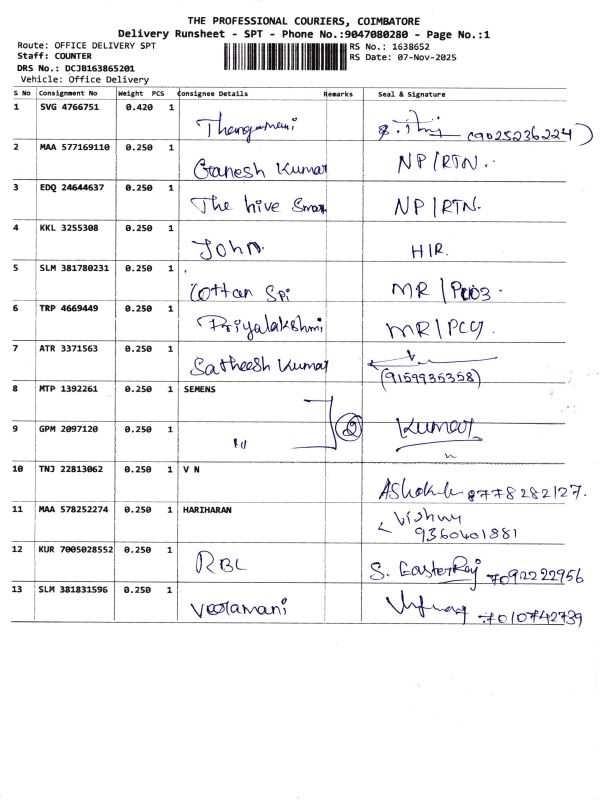 THE PROFESSIONAL COURIERS, COIMBATORE
Delivery Runsheet - SPT - Phone No.:9047080280 - Page No.:1
Route: OFFICE DELIVERY SPT RS No.: 1638652
Staff: COUNTER RS Date: 07-Nov-2025
DRS No.: DCJB163865201
Vehicle: Office Delivery
S No Consignment No Weight PCS Consignee Details Remarks Seal & Signature
1 SVG 4766751 0.420 1 Thangamani (9025236224)
2 MAA 577169110 0.250 1 Ganesh Kumar NP/RTN.
3 EDQ 24644637 0.250 1 The hive Smar NP/RTN.
4 KKL 3255308 0.250 1 John HIR.
5 SLM 381780231 0.250 1 Cottan Spi MR/
6 TRP 4669449 0.250 1 Priyalakshmi MR/
7 ATR 3371563 0.250 1 Satheesh Kumar (9159935358)
8 MTP 1392261 0.250 1 SEMENS
9 GPM 2097120 0.250 1 〃 2 Kumar
10 TNJ 22813062 0.250 1 V N Ashok 8778282127.
11 MAA 578252274 0.250 1 HARIHARAN Vishnu
9360401881
12 KUR 7005028552 0.250 1 RBL S. EasterRaj 7092222956
13 SLM 381831596 0.250 1 Veeramani 7010742739